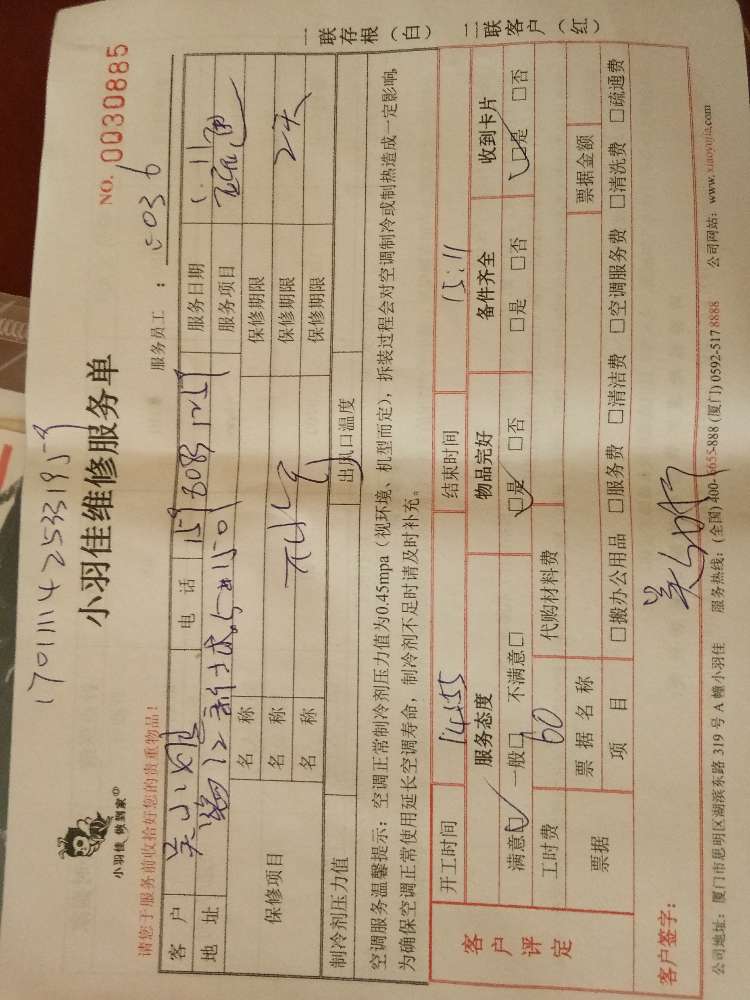 170111142533195-9
小羽佳 做到家
小羽佳维修服务单
NO. 0030885
请您于服务前收拾好您的贵重物品!
服务员工: 036
客户 吴小姐 电话 服务日期 1.11
地址 服务项目 疏通
保修项目 名称 保修期限
名称 保修期限 2天
名称 保修期限
制冷剂压力值 出风口温度
空调服务温馨提示:空调正常制冷剂压力值为0.45mpa(视环境、机型而定),拆装过程会对空调制冷或制热造成一定影响,
为确保空调正常使用延长空调寿命,制冷剂不足时请及时补充。
客户评定
开工时间 14:55 结束时间 15:11
服务态度 物品完好 备件齐全 收到卡片
满意□ 一般□ 不满意□ □是 □否 □是 □否 □是 □否
工时费 60 代购材料费
票据 票据名称 票据金额
项目 □搬办公用品 □服务费 □清洁费 □空调服务费 □清洗费 □疏通费
客户签字:
公司地址:厦门市思明区湖滨东路319号A幢小羽佳 服务热线:(全国)400-6655-888 (厦门) 0592-5178888 公司网站:www.xiaoyujia.com
一联存根(白) 二联客户(红)